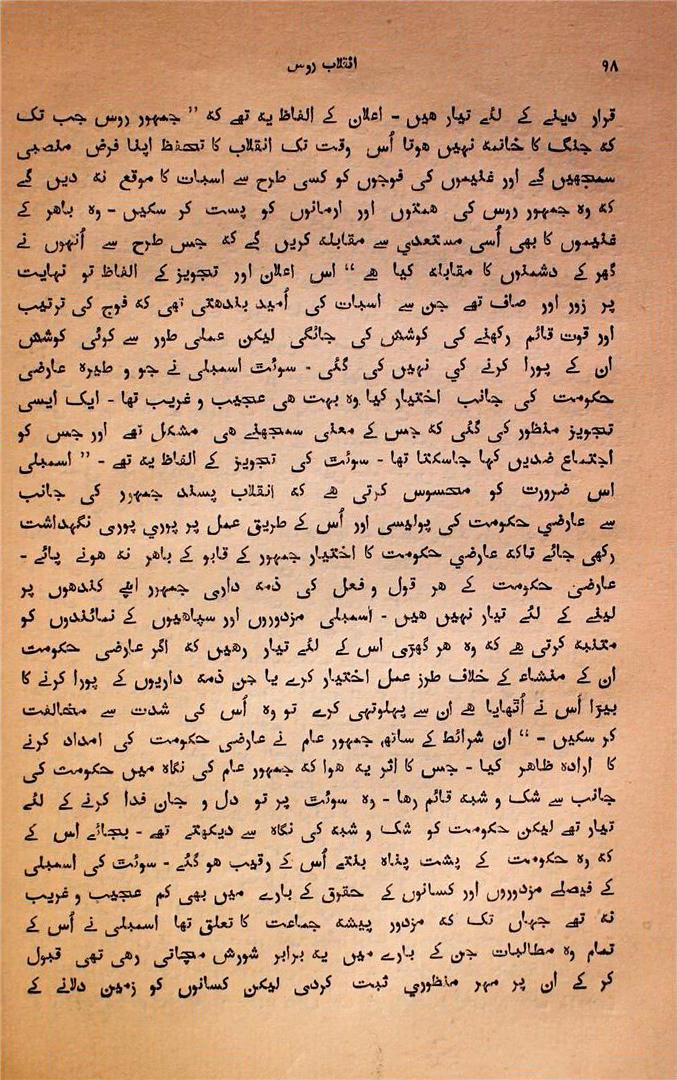 ۹۸ انقلاب روس
قرار دینے کے لئے تیار هیں - اعلان کے الفاظ یہ تھے کہ ” جمہور روس جب تک
کہ جنگ کا خاتمہ نہیں هوتا اُس وقت تک انقلاب کا تحفظ اپنا فرض منصبی
سمجھیں گے اور غنیموں کی فوجوں کو کسی طرح سے اسبات کا موقع نہ دیں گے
کہ وہ جمہور روس کی همتوں اور ارمانوں کو پست کر سکیں - وہ باهر کے
غنیموں کا بھی اُسی مستعدي سے مقابلہ کریں گے کہ جس طرح سے اُنہوں نے
گھر کے دشمنوں کا مقابلہ کیا هے “ اس اعلان اور تجویز کے الفاظ تو نہایت
پر زور اور صاف تھے جن سے اسبات کی اُمید بندھتی تھی کہ فوج کی ترتیب
اور قوت قائم رکھنے کی کوشش کی جائگی لیکن عملی طور سے کوئی کوشش
ان کے پورا کرنے کي نہیں کی گئی - سوئٹ اسمبلی نے جو و طیرہ عارضی
حکومت کی جانب اختیار کیا وہ بہت هی عجیب و غریب تھا - ایک ایسی
تجویز منظور کی گئی کہ جس کے معنی سمجھنے هی مشکل تھے اور جس کو
اجتماع ضدیں کہا جاسکتا تھا - سوئٹ کی تجویز کے الفاظ یہ تھے - ” اسمبلی
اس ضرورت کو محسوس کرتی هے کہ انقلاب پسند جمہور کی جانب
سے عارضي حکومت کی پولیسی اور اُس کے طریق عمل پر پوري پوری نگہداشت
رکھی جائے تاکہ عارضي حکومت کا اختیار جمہور کے قابو کے باهر نہ هونے پائے -
عارضی حکومت کے هر قول و فعل کی ذمہ داری جمہور اپنے کندھوں پر
لینے کے لئے تیار نہیں هیں - اسمبلی مزدوروں اور سپاهیوں کے نمائندوں کو
متنبہ کرتی هے کہ وہ هر گھڑی اس کے لئے تیار رهیں کہ اگر عارضی حکومت
ان کے منشاء کے خلاف طرز عمل اختیار کرے یا جن ذمہ داریوں کے پورا کرنے کا
بیڑا اُس نے اُٹھایا هے ان سے پہلوتہی کرے تو وہ اُس کی شدت سے مخالفت
کر سکیں - “ ان شرائط کے ساتھ جمہور عام نے عارضی حکومت کی امداد کرنے
کا ارادہ ظاهر کیا - جس کا اثر یہ هوا کہ جمہور عام کی نگاہ میں حکومت کی
جانب سے شک و شبہ قائم رها - وہ سوئٹ پر تو دل و جان فدا کرنے کے لئے
تیار تھے لیکن حکومت کو شک و شبہ کی نگاہ سے دیکھتے تھے - بجائے اس کے
کہ وہ حکومت کے پشت پناہ بنتے اُس کے رقیب هو گئے - سوئٹ کی اسمبلی
کے فیصلے مزدوروں اور کسانوں کے حقوق کے بارے میں بھی کم عجیب و غریب
نہ تھے جہاں تک کہ مزدور پیشہ جماعت کا تعلق تھا اسمبلی نے اُس کے
تمام وہ مطالبات جن کے بارے میں یہ برابر شورش مچاتی رهی تھی قبول
کر کے ان پر مہر منظوري ثبت کردی لیکن کسانوں کو زمین دلانے کے